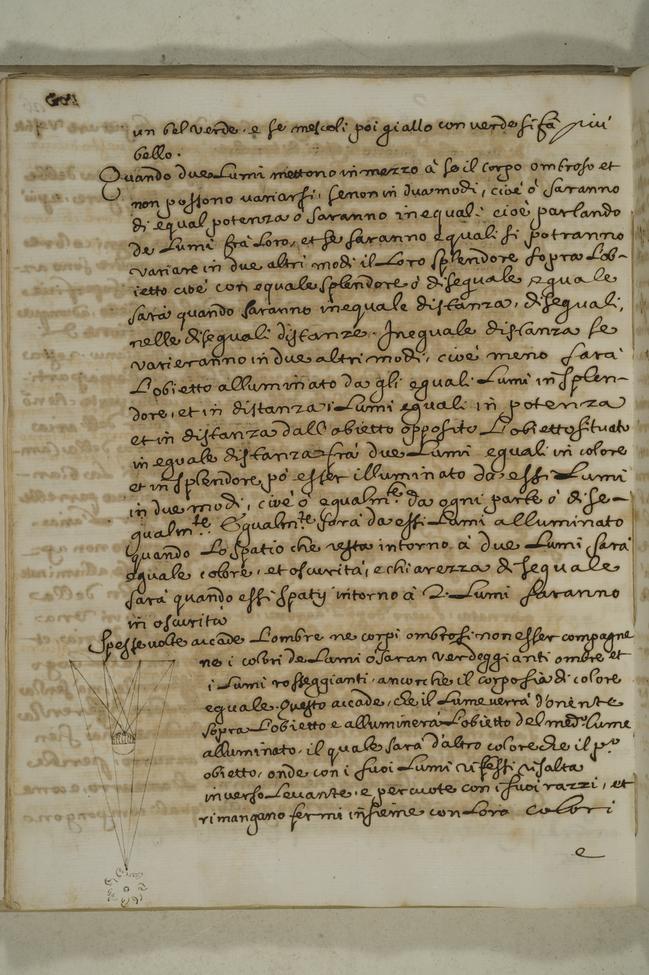 un bel verde. e se mescoli poi giallo con verde si fà più
bello.
Quando due Lumi mettono in mezzo à se il corpo ombroso et
non possono variarsi, se non in dua modi, cioè ò saranno
di equal potenza ò saranno inequali cioè parlando
de Lumi frà Loro, et se saranno equali si potranno
variare in due altri modi il Loro splendore sopra Lob-
ietto cioè con equale splendore ò disequale equale
sarà quando saranno in equale distanza, disequali,
nelle disequali distanze. In equale distanza se
varieranno in due altri modi, cioè meno sarà
L'obietto alluminato da gli equali Lumi in splen-
dore, et in distanza i Lumi equali in potenza
et in distanza dall'obietto opposito L'obietto situato
in equale distanza frà due Lumi equali in colore
et in splendore pò esser illuminato da essi Lumi
in due modi, cioè ò equalm.te da ogni parte ò dise-
qualm.te. Equalm.te sarà da essi Lumi alluminato
quando Lo spatio che resta intorno à due Lumi sarà
equale colore, et oscurità, e chiarezza disequale
sarà quando essi spatij intorno à 2. Lumi saranno
in oscurità
Spesse volte accade L'ombre ne corpi ombrosi non esser compagne
ne i colori de Lumi ò saran verdeggianti ombre et
i Lumi rosseggianti, ancorche il corpo sia di colore
equale. Questo accade, che il Lume verrà d'oriente
sopra L'obietto e alluminerà L'obietto del med.o lume
alluminato, il quale sarà d'altro colore che il p.o
obietto, onde con i suoi Lumi riflessi risalta
inverso Levante, e percuote con i suoi razzi, et
rimangano fermi insieme con Loro colori
e